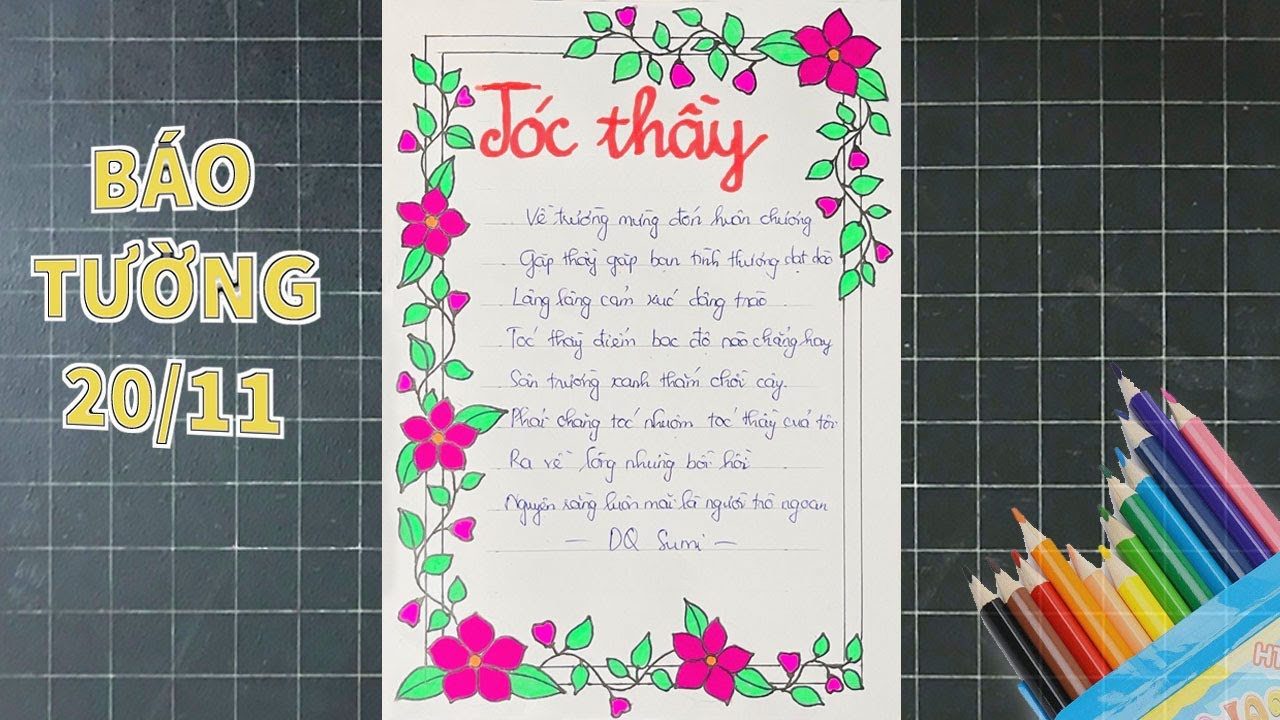 BÁO
TƯỜNG
20/11
Tóc thầy
Về trường mừng đón huân chương
Gặp thầy gặp bạn tình thương dạt dào
Lâng lâng cảm xúc dâng trào
Tóc thầy điểm bạc độ nào chẳng hay
Sân trường xanh thắm chồi cây.
Phải chăng tóc nhuộm tóc thầy của tôi
Ra về lòng những bồi hồi
Nguyện rằng luôn mãi là người trò ngoan
— DQ Sumi —